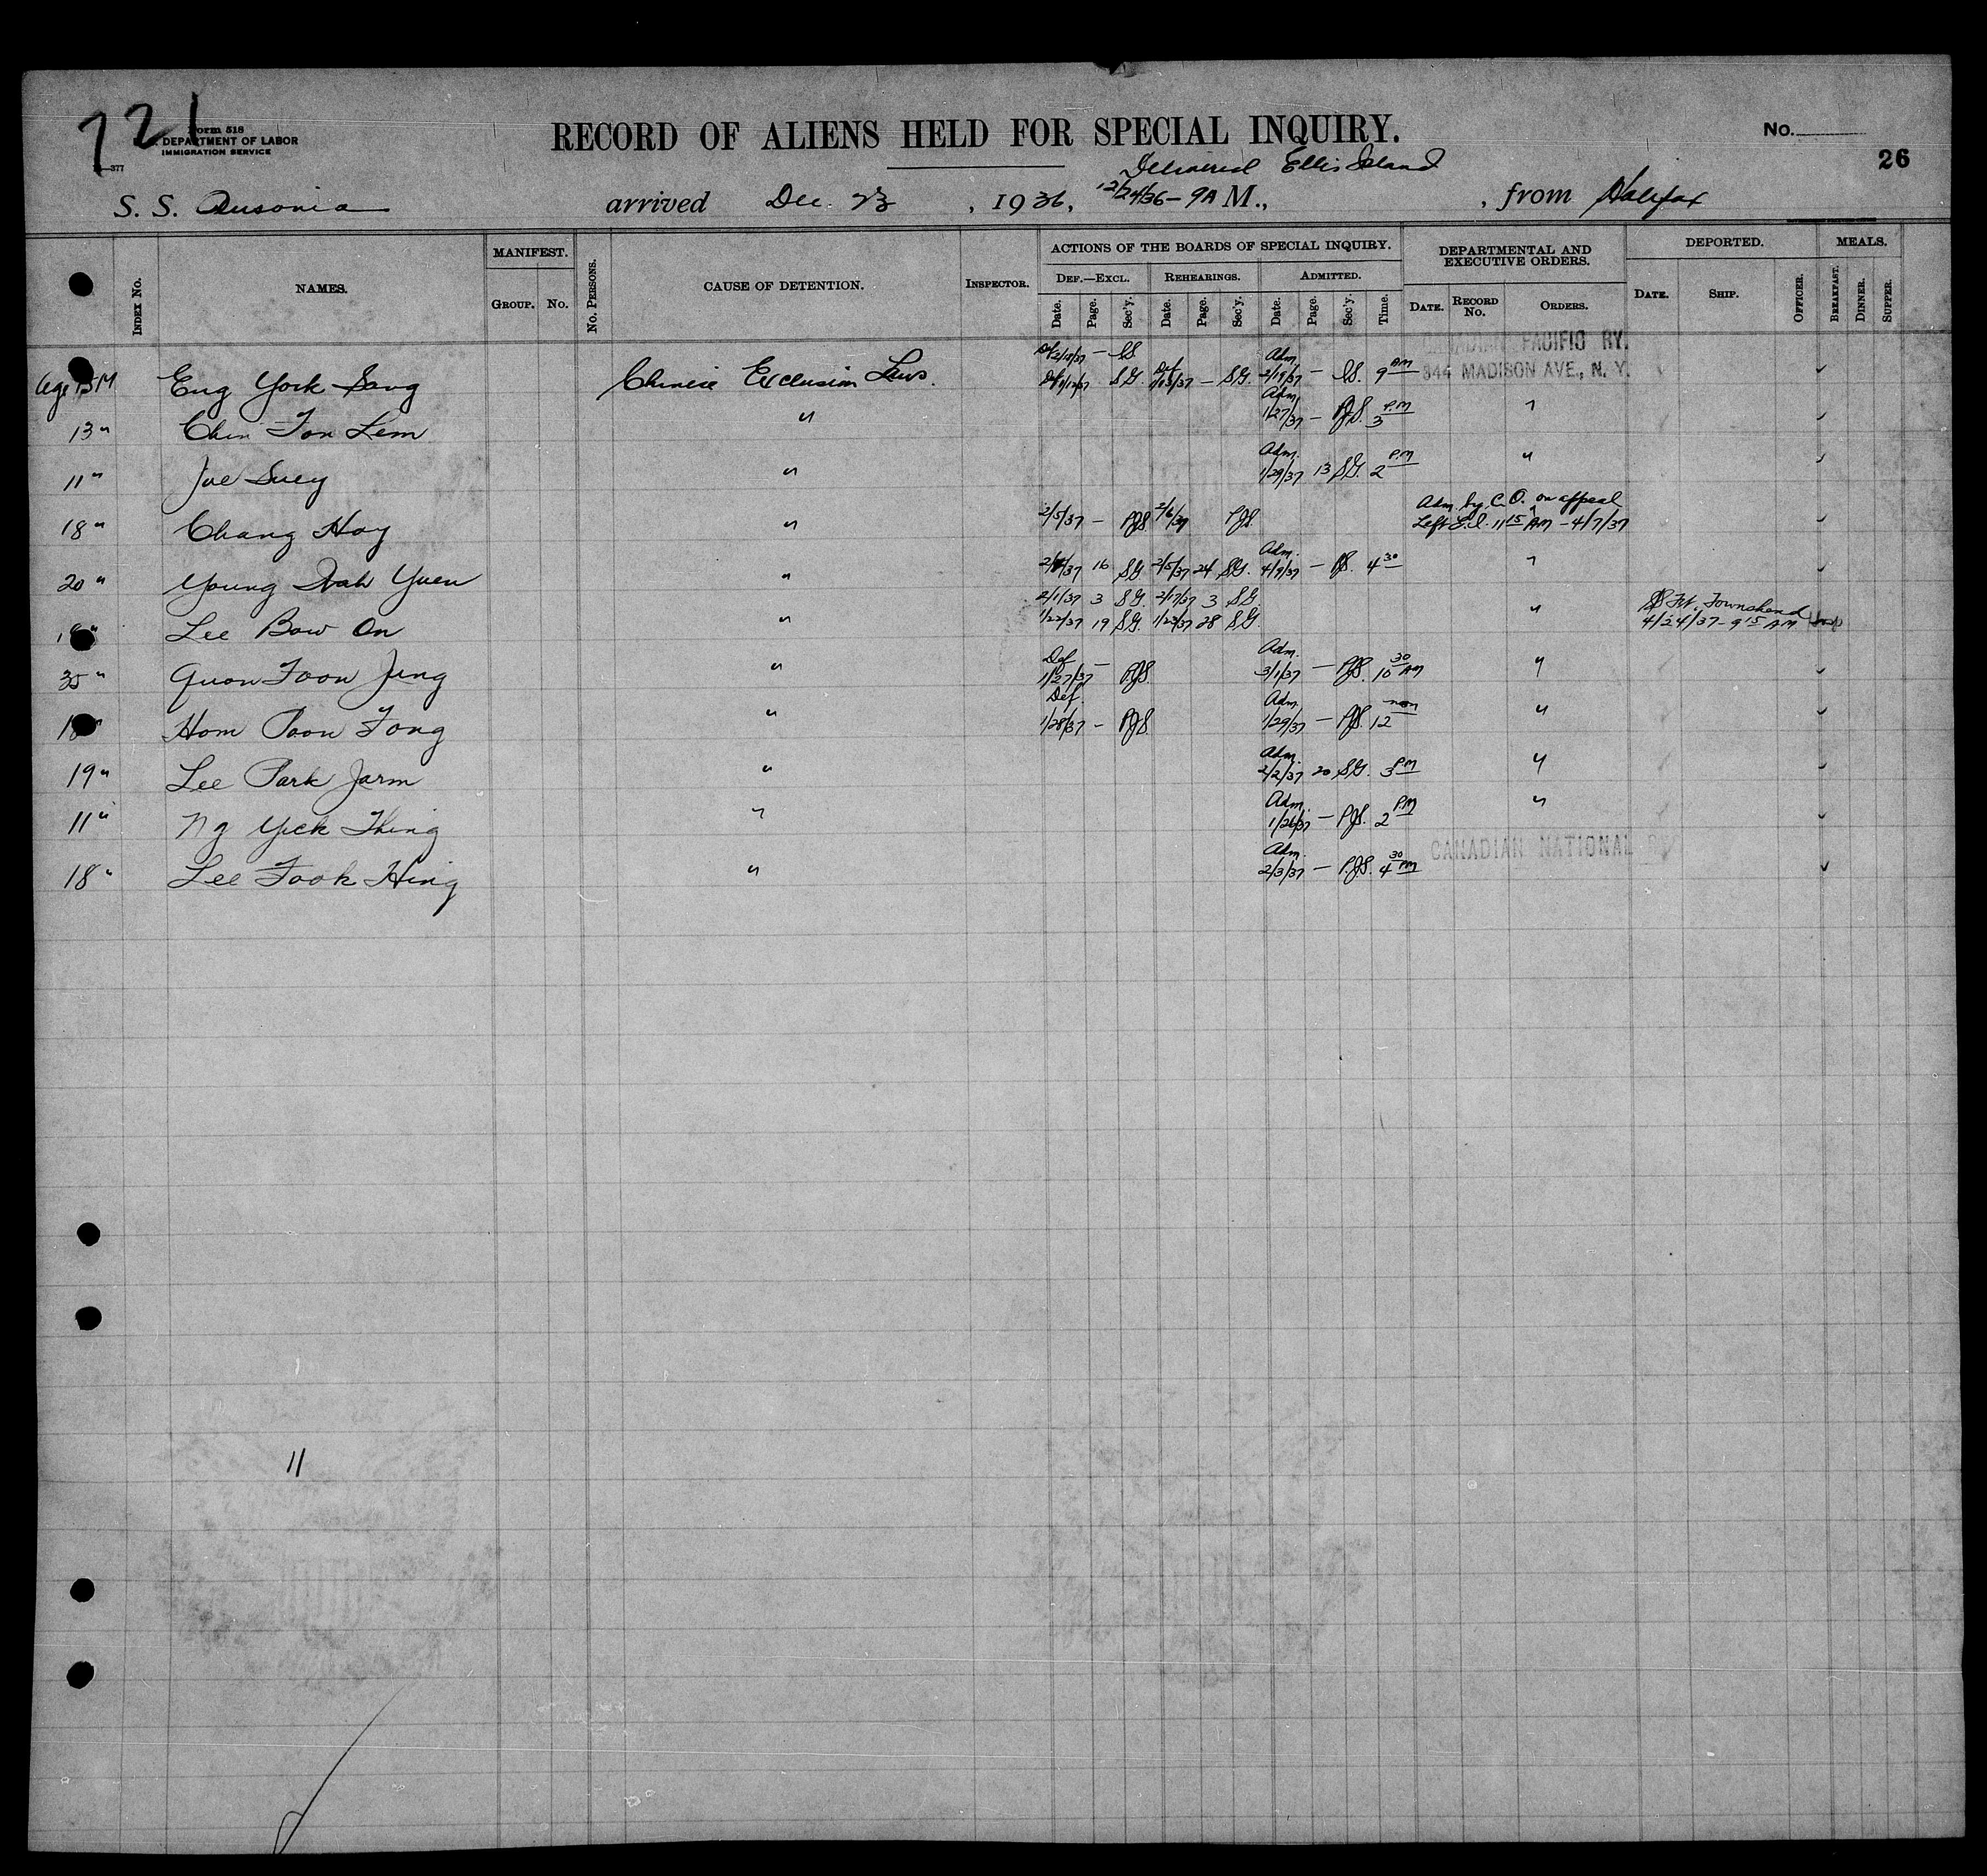 721
Form 518
DEPARTMENT OF LABOR
IMMIGRATION SERVICE
RECORD OF ALIENS HELD FOR SPECIAL INQUIRY.
No.
26
Delivered Ellis Island
S. S. Ausonia arrived Dec. 23, 1936, 12/24/36 - 9A M., , from Halifax
INDEX No. NAMES. MANIFEST. GROUP. No. No. PERSONS. CAUSE OF DETENTION. INSPECTOR. ACTIONS OF THE BOARDS OF SPECIAL INQUIRY. DEPARTMENTAL AND EXECUTIVE ORDERS. DEPORTED. MEALS.
DEF.—EXCL. REHEARINGS. ADMITTED.
Date. Page. Sec'y. Date. Page. Sec'y. Date. Page. Sec'y. Time. DATE. RECORD No. ORDERS. DATE. SHIP. OFFICER. BREAKFAST. DINNER. SUPPER.
CANADIAN PACIFIC RY.
344 MADISON AVE., N. Y.
Age 15 M Eng York Sang Chinese Exclusion Laws. S.G. — S.G. Adm. 2/19/37 — 9 AM
13 " Chin Ton Lem " Adm. 1/27/37 — PJS. 3 PM "
11 " Joe Suey " Adm. 1/29/37 13 S.G. 2 PM "
18 " Chang Hoy " 2/5/37 — PJS 2/6/37 PJS Adm. by C.O. on appeal
Left E.I. 11 15 AM - 4/7/37
20 " Young Wah Yuen " 16 S.G. 2/5/37 24 S.G. Adm. 4/9/37 — PJS. 4 30 "
2/1/37 3 S.G. 2/17/37 3 S.G.
" Lee Bow On " 1/22/37 19 S.G. 1/23/37 28 S.G. " SS Ft. Townshend
4/24/37 - 9 15 AM
35 " Quon Foon Jung " Def 1/27/37 — PJS. Adm. 3/1/37 — PJS. 10 30 AM "
Hom Poon Fong " Def. 1/28/37 — PJS. Adm. 1/29/37 — PJS. 12 noon "
19 " Lee Park Jarm " Adm. 2/2/37 20 S.G. 3 PM "
11 " Ng Yick Thing " Adm. 1/26/37 — PJS. 2 PM "
CANADIAN NATIONAL RY
18 " Lee Fook Hing " Adm. 2/3/37 — P.J.S. 4 30 PM
11